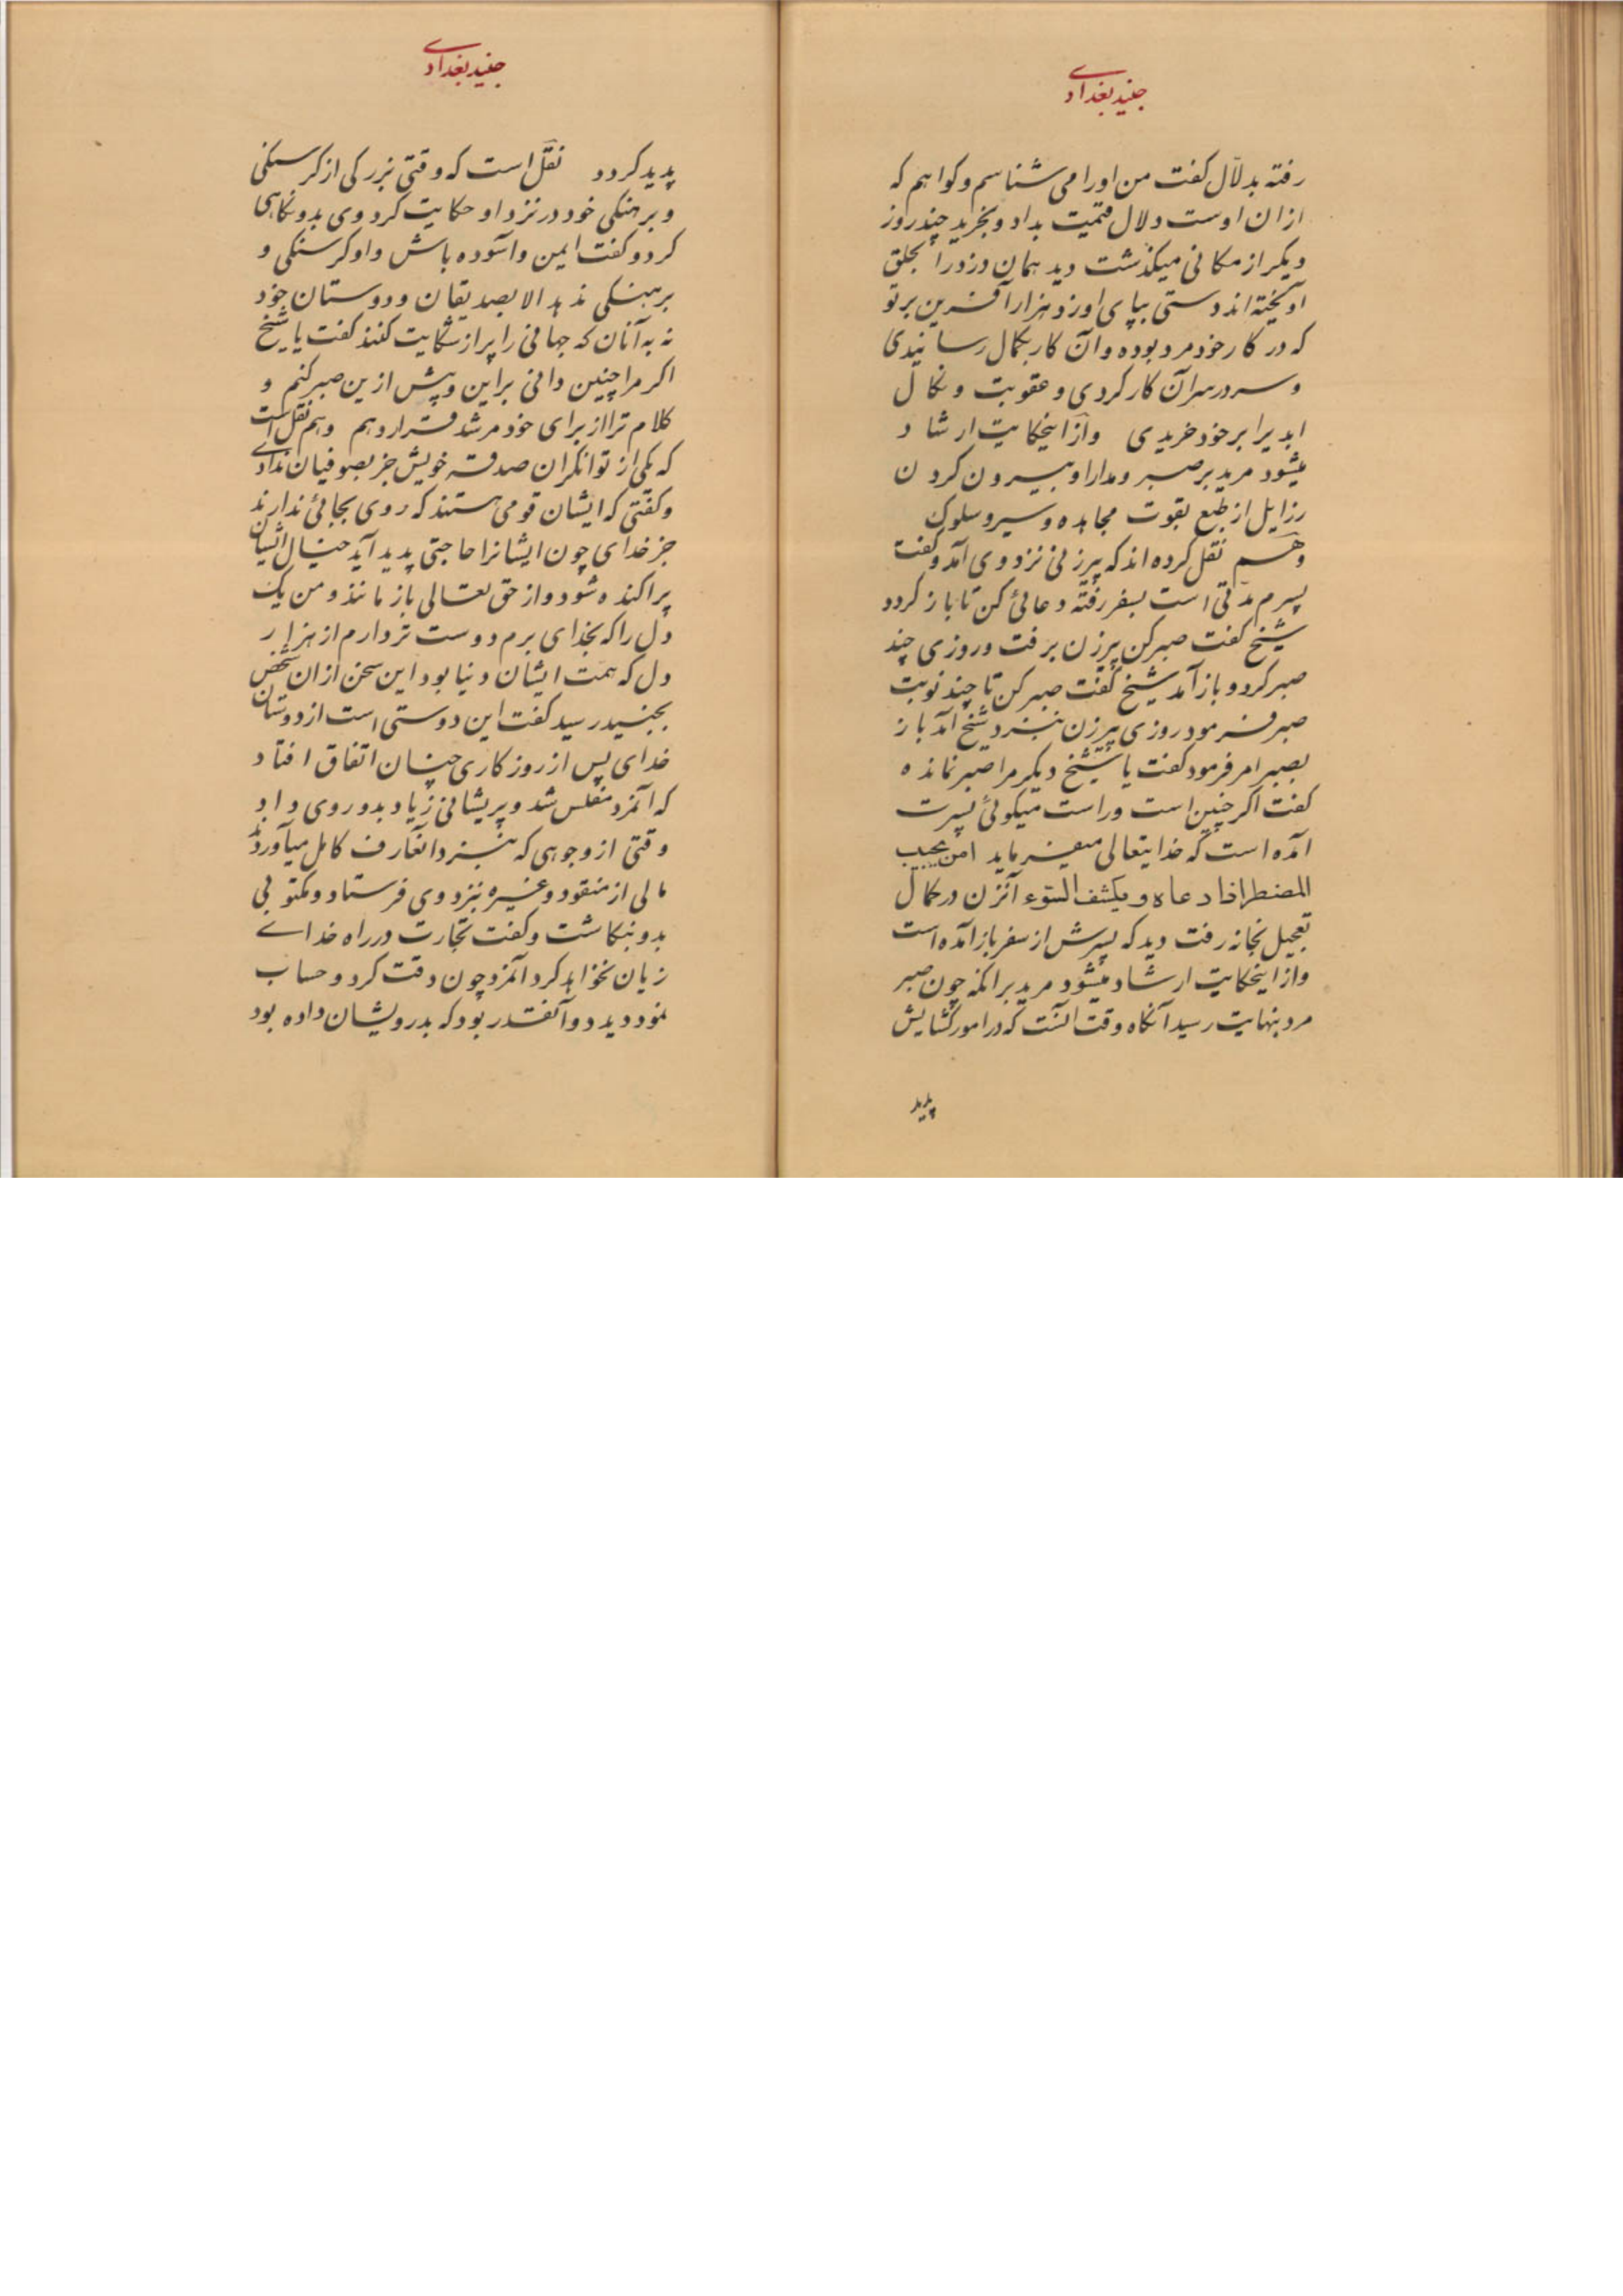 جنید بغدادی
رفته بدلّال کفت من اورا می شناسم و کواهم که
از ان اوست دلال قیمت بداد و بخرید چند روز
دیکر از مکانی میکذشت دید همان دزد را بحلق
آویخته اند دستی بپای او زد هزار آفرین بر تو
که در کار خود مرد بوده و آن کار بکمال رسانیدی
و سر در سر آن کار کردی و عقوبت و نکال
ابد برابر خود خریدی وازاینحکایت ارشاد
میشود مرید بر صبر و مدارا و بیرون کردن
رزایل از طبع بقوت مجاهده و سیر و سلوک
وهم نقل کرده اند که پیرزنی نزد وی آمد و کفت
پسرم مدّتی است بسفر رفته دعائی کن تا باز کردد
شیخ کفت صبر کن پیرزن برفت و روزی چند
صبر کرد و باز آمد شیخ کفت صبر کن تا چند نوبت
صبر فرمود روزی پیرزن بنزد شیخ آمد باز
بصبر امر فرمود کفت یا شیخ دیکر مرا صبر نمانده
کفت اکر چنین است و راست میکوئی پسرت
آمده است که خدایتعالی میفرماید امن یجیب
المضطر اذا دعاه و یکشف السّوء آنزن در کمال
تعجیل بخانه رفت دید که پسرش از سفر باز آمده است
وازاینحکایت ارشاد میشود مرید برانکه چون صبر
مرد بنهایت رسید آنکاه وقت آنست که در امور کشایش
پدید
جنید بغدادی
پدید کردد نقل است که وقتی بزرکی از کرسنکی
و برهنکی خود در نزد او حکایت کرد وی بدو نکاهی
کرد و کفت ایمن و آسوده باش و او کرسنکی و
برهنکی ندهد الا بصدیقان و دوستان خود
نه به آنان که جهانی را پر از شکایت کنند کفت یا شیخ
اکر مرا چنین دانی براین و بیش ازین صبر کنم و
کلام ترا از برای خود مرشد قرار دهم وهم نقل است
که یکی از توانکران صدقه خویش جز بصوفیان ندادی
و کفتی که ایشان قومی هستند که روی بجائی ندارند
جز خدای چون ایشانرا حاجتی پدید آید خیال ایشان
پراکنده شود و از حق تعالی باز مانند و من یک
دل را که بخدای برم دوست تر دارم از هزار
دل که همت ایشان دنیا بود این سخن از ان شخص
بجنید رسید کفت این دوستی است از دوستان
خدای پس از روزکاری چنان اتفاق افتاد
که آنمرد مفلس شد و پریشانی زیاد بدو روی داد
وقتی از وجوهی که بنزد انعارف کامل میآوردند
مالی از منقود و غیره نزد وی فرستاد و مکتوبی
بدو بنکاشت و کفت تجارت در راه خدای
زیان نخواهد کرد آنمرد چون دقت کرد و حساب
نمود دید دو آنقدر بود که بدرویشان داده بود